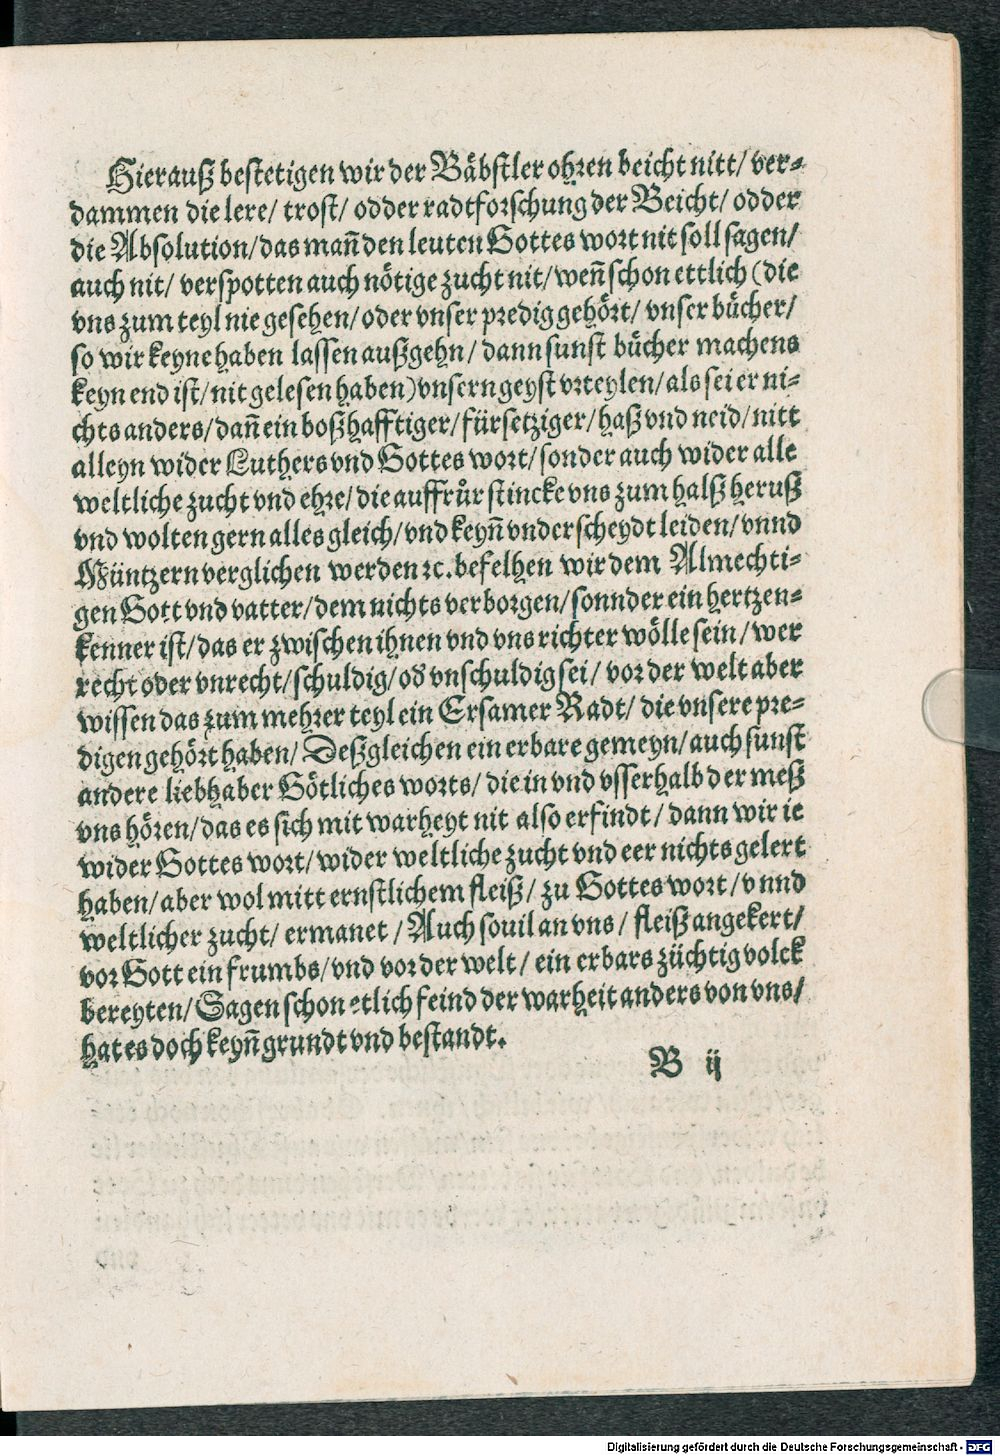 Hierauß bestetigen wir der Bäbstler ohren beicht nitt/ ver-
dammen die lere/ trost/ odder radtforschung der Beicht/ odder
die Absolution/ das mañ den leuten Gottes wort nit soll sagen/
auch nit/ verspotten auch nötige zucht nit/ weñ schon ettlich (die
vns zum teyl nie gesehen/ oder vnser predig gehört/ vnser bücher/
so wir keyne haben lassen außgehn/ dann sunst bücher machens
keyn end ist/ nit gelesen haben) vnsern geyst vrteylen/ als sei er ni-
chts anders/ dañ ein boßhafftiger/ fürsetziger/ haß vnd neid/ nitt
alleyn wider Luthers vnd Gottes wort/ sonder auch wider alle
weltliche zucht vnd ehre/ die auffrůr stincke vns zum halß heruß
vnd wolten gern alles gleich/ vnd keyñ vnderscheydt leiden/ vnnd
Müntzern verglichen werden ꝛc. befelhen wir dem Almechti-
gen Gott vnd vatter/ dem nichts verborgen/ sonnder ein hertzen-
kenner ist/ das er zwischen ihnen vnd vns richter wölle sein/ wer
recht oder vnrecht/ schuldig/ od vnschuldig sei/ vor der welt aber
wissen das zum mehrer teyl ein Ersamer Radt/ die vnsere pre-
digen gehört haben/ Deßgleichen ein erbare gemeyn/ auch sunst
andere liebhaber Götliches worts/ die in vnd vsserhalb der meß
vns hören/ das es sich mit warheyt nit also erfindt/ dann wir ie
wider Gottes wort/ wider weltliche zucht vnd eer nichts gelert
haben/ aber wol mitt ernstlichem fleiß/ zu Gottes wort/ vnnd
weltlicher zucht/ ermanet/ Auch souil an vns/ fleiß angekert/
vor Gott ein frumbs/ vnd vor der welt/ ein erbars züchtig volck
bereyten/ Sagen schon etlich feind der warheit anders von vns/
hat es doch keyñ grundt vnd bestandt.
B ij
Digitalisierung gefördert durch die Deutsche Forschungsgemeinschaft - DFG